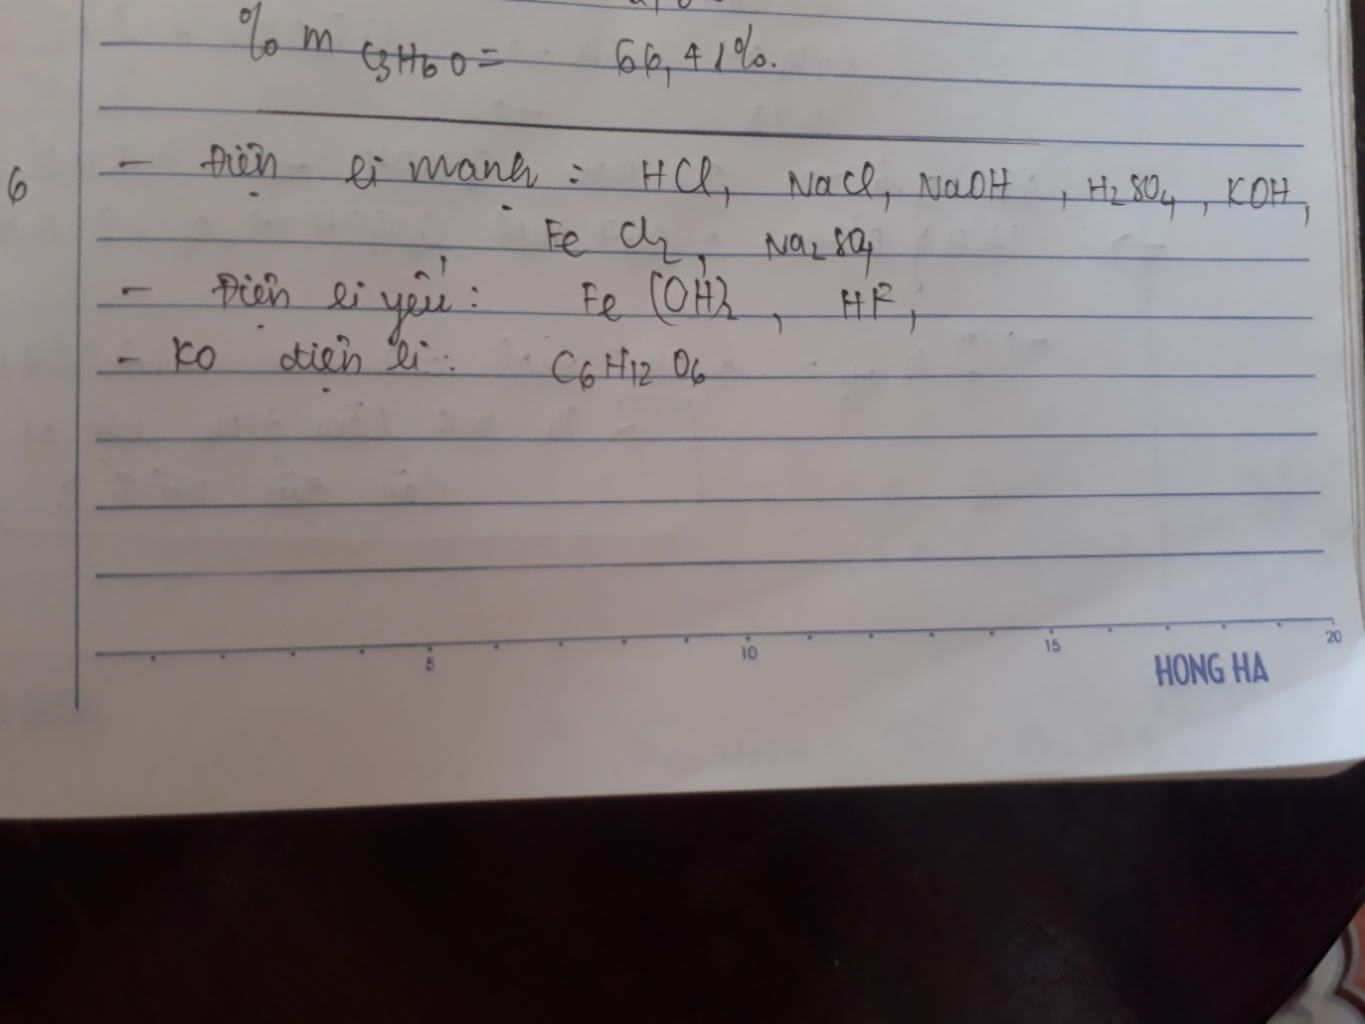 % m C3H6O = 66,41%.
6
- Điện li mạnh : HCl, NaCl, NaOH, H2SO4, KOH,
FeCl2, Na2SO4
- Điện li yếu : Fe(OH)2, HF,
- Ko điện li : C6H12O6
5 10 15 20
HONG HA